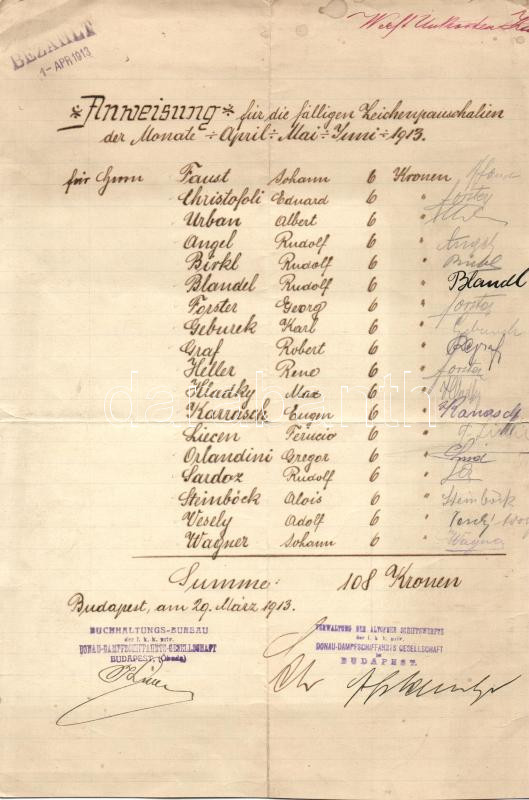 BEZAHLT
1-APR 1913
Werft Unkosten
*Anweisung* für die fälligen Zeichenpauschalien
der Monate ÷ April ÷ Mai ÷ Juni ÷ 1913.
für Herrn Faust Johann 6 Kronen
Christofoli Eduard 6 " Forster
Urban Albert 6 "
Angel Rudolf 6 " Angel
Birkl Rudolf 6 " Birkl
Blandel Rudolf 6 " Blandl
Forster Georg 6 " Forster
Geburek Karl 6 "
Graf Robert 6 " RGraf
Heller Reno 6 " Forster
Hladky Max 6 " Hladky
Karrisch Eugen 6 "
Liecen Ferucio 6 "
Orlandini Gregor 6 "
Sardoz Rudolf 6 "
Steinböck Alois 6 " Steinböck
Vesely Adolf 6 "
Wagner Johann 6 " Wagner
Summe: 108 Kronen
Budapest, am 29. März 1913.
BUCHHALTUNGS-BUREAU
der I. k. k. priv.
DONAU-DAMPFSCHIFFAHRTS-GESELLSCHAFT
BUDAPEST, (Óbuda)
VERWALTUNG DER ALTOFNER SCHIFFSWERFTE
der I. k. k. priv.
DONAU-DAMPFSCHIFFAHRTS GESELLSCHAFT
in
BUDAPEST.
darabanth